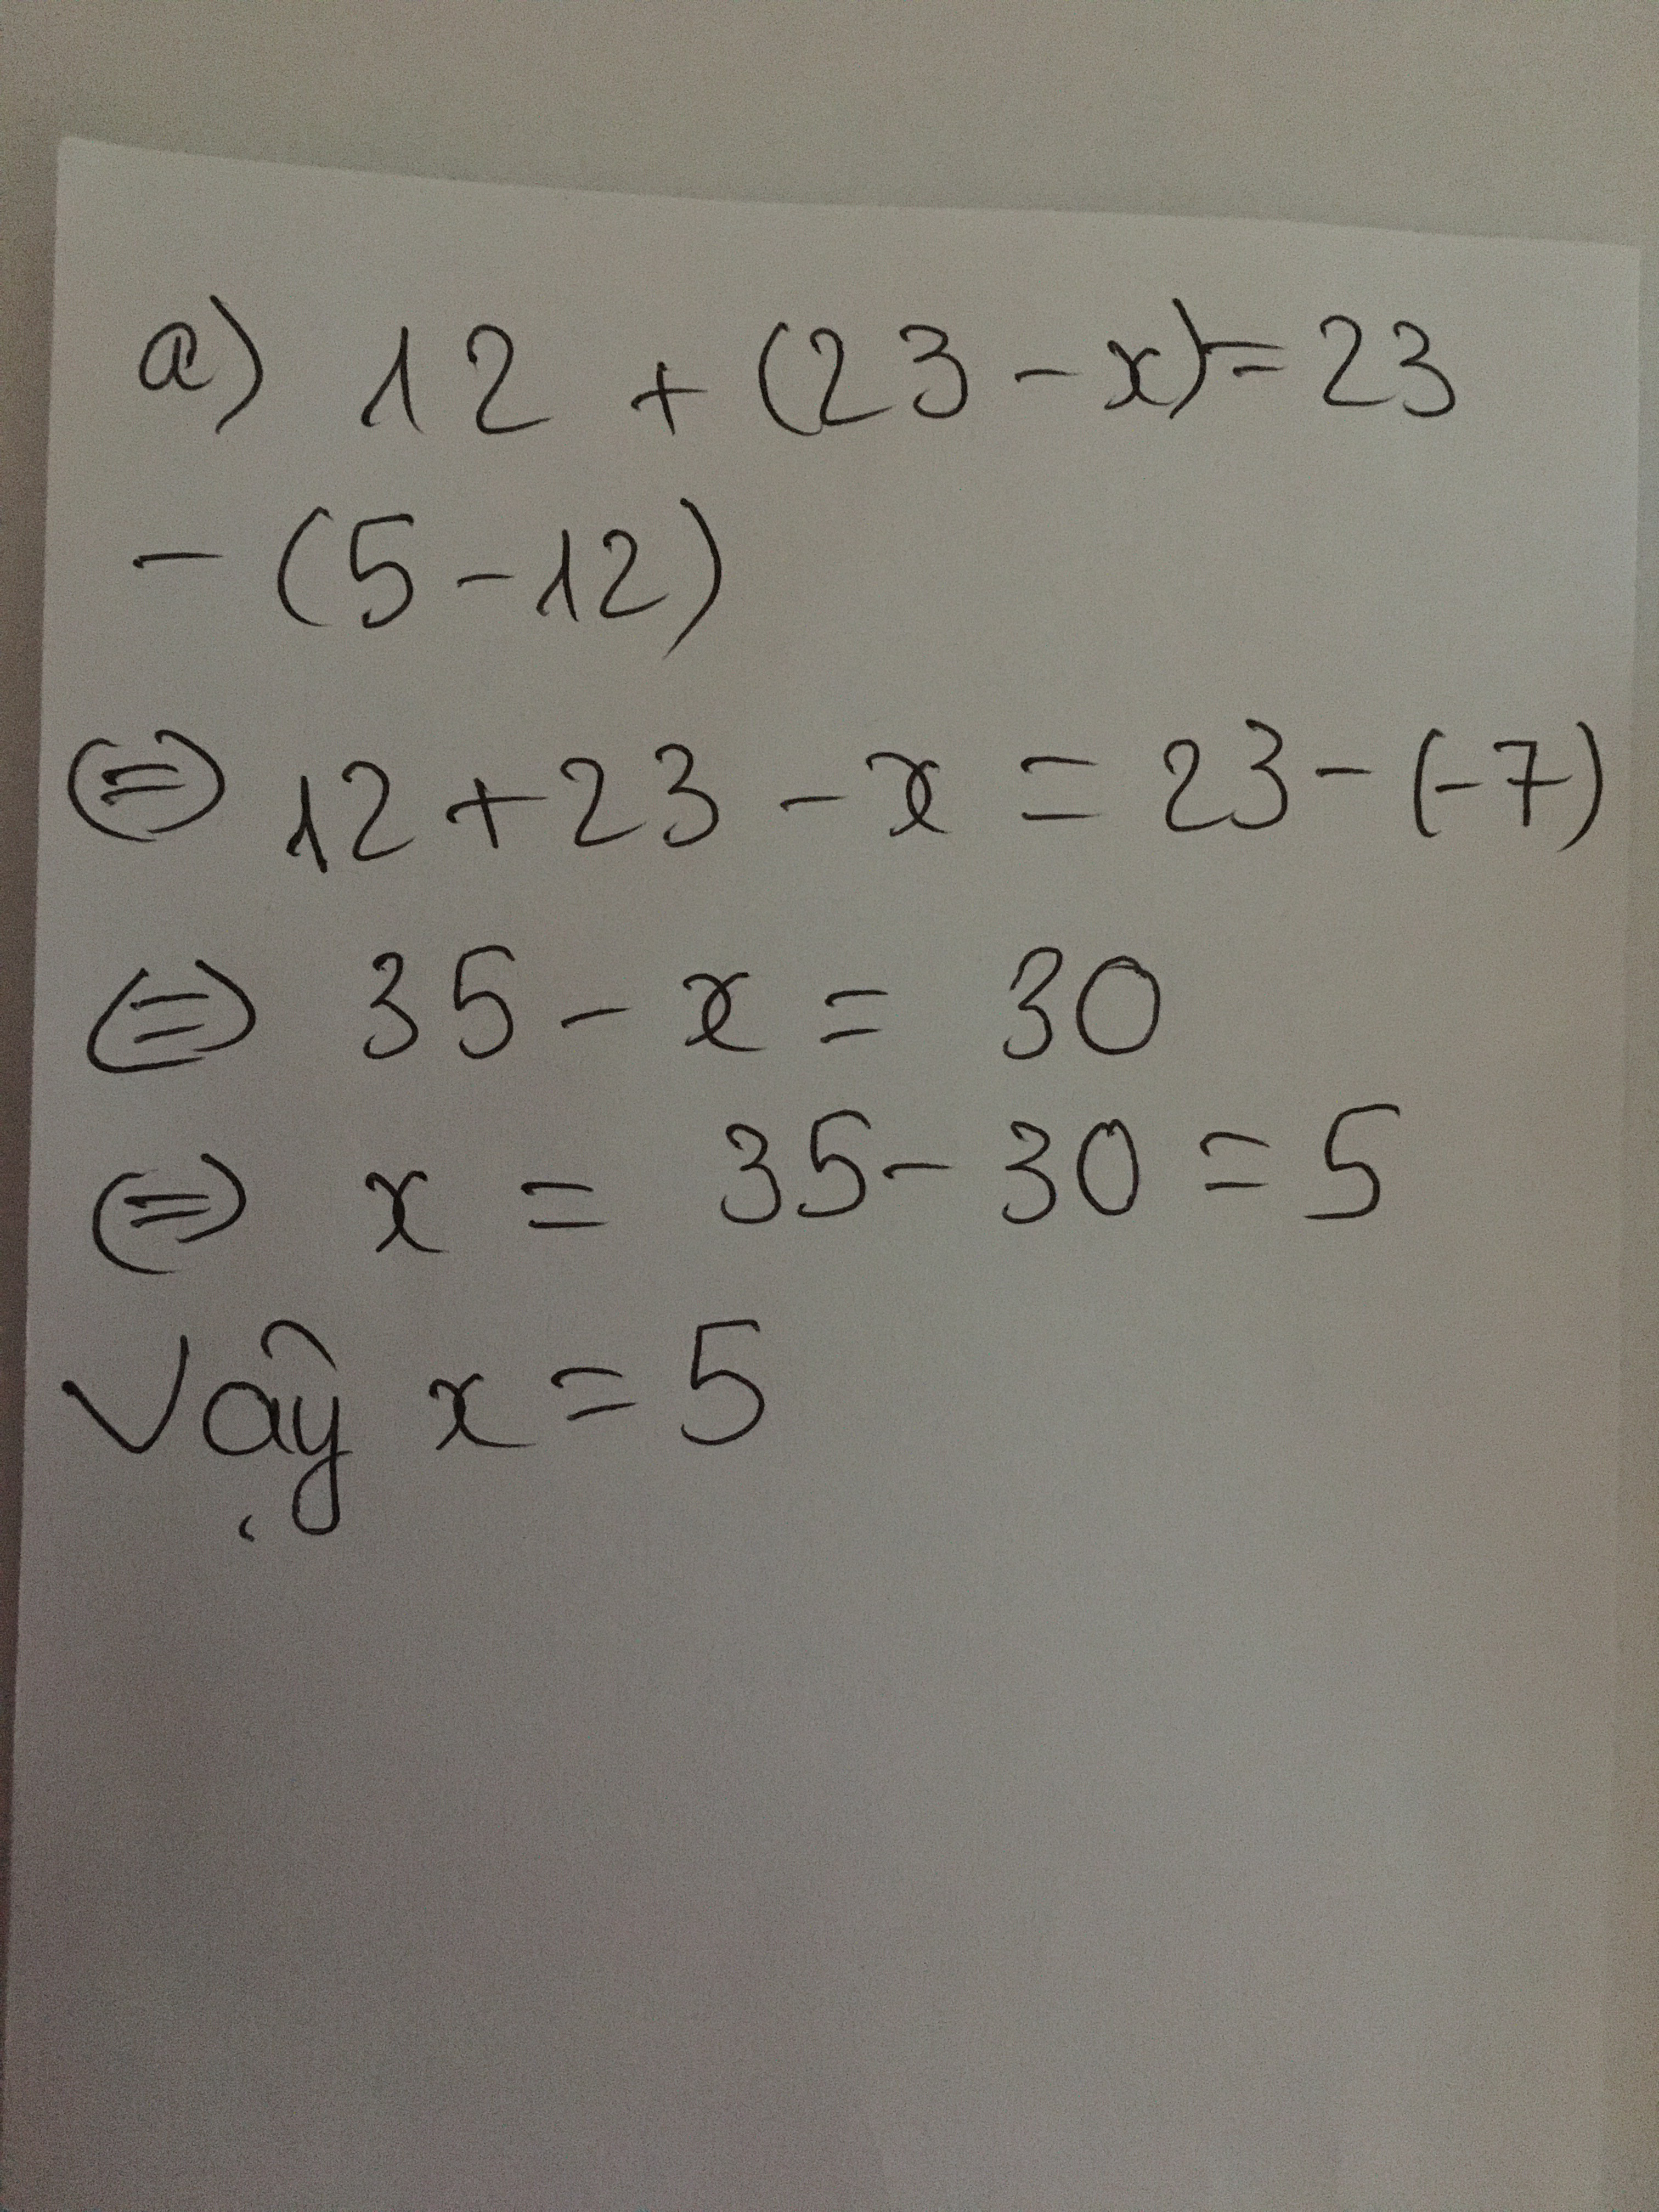 a) 12 + (23 - x) = 23
- (5 - 12)
⇔ 12 + 23 - x = 23 - (-7)
⇔ 35 - x = 30
⇔ x = 35 - 30 = 5
Vậy x = 5